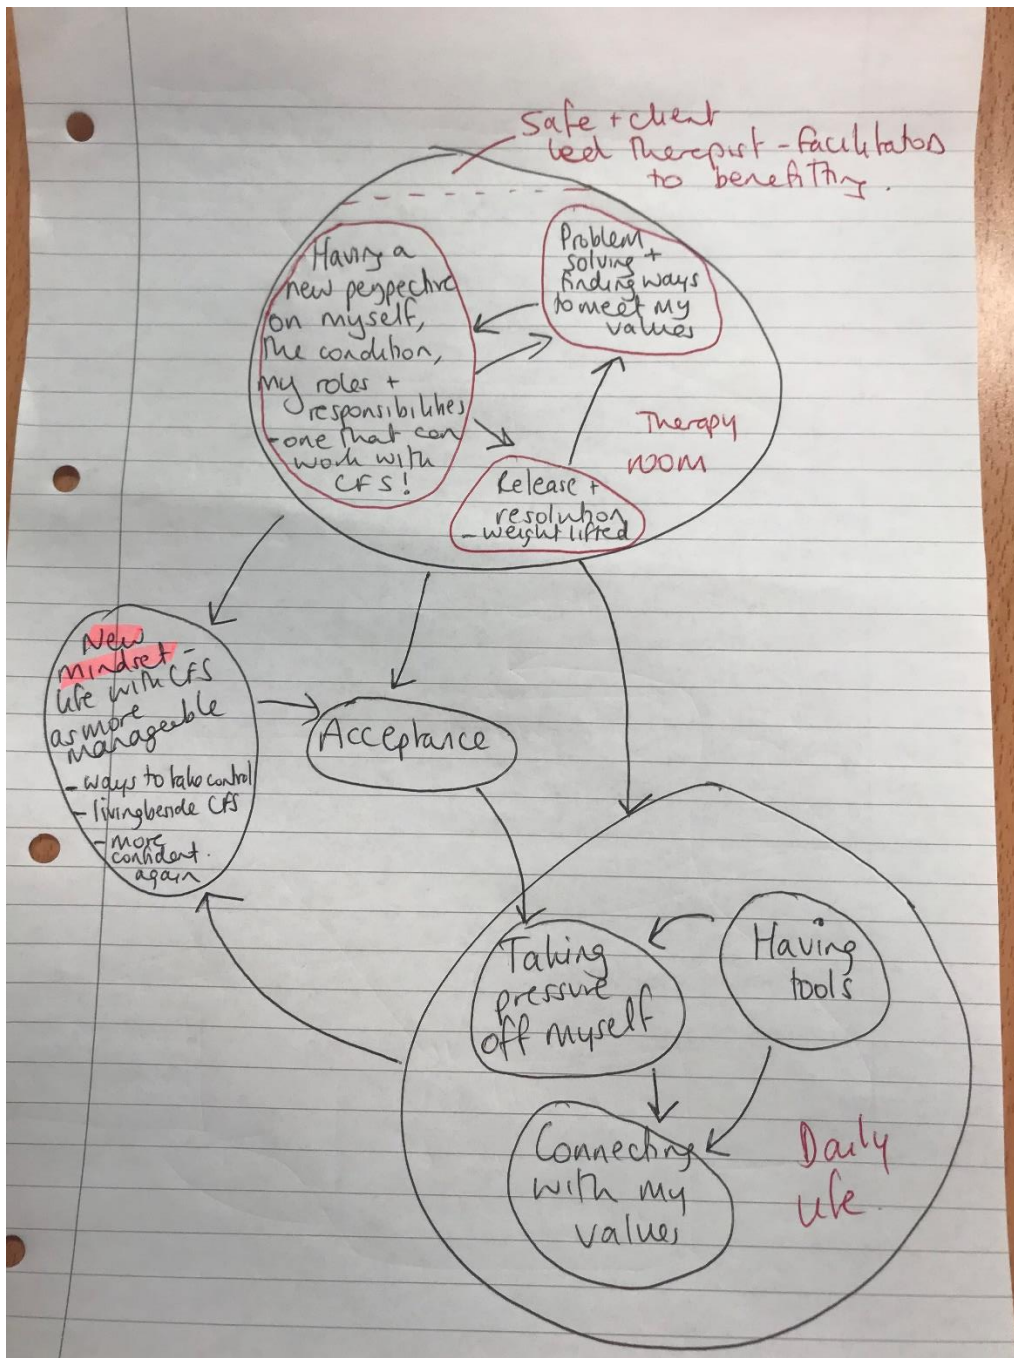 Safe + client
led Therapist - facilitators
to benefitting.
Having a
new perspective
on myself,
the condition,
my roles +
responsibilities
- one that can
work with
CFS!
Problem
solving +
finding ways
to meet my
values
Therapy
room
Release +
resolution
- weight lifted
New
mindset -
life with CFS
as more
manageable
- ways to take control
- living beside CFS
- more
confident.
again
Acceptance
Taking
pressure
off myself
Having
tools
Connecting
with my
values
Daily
life.